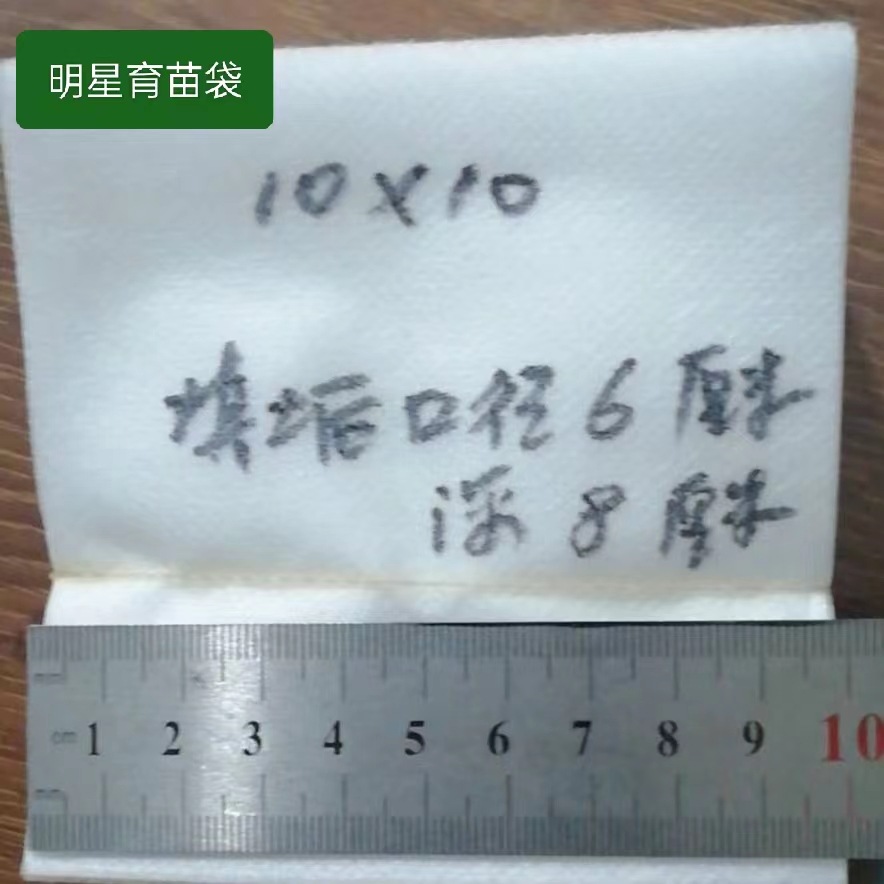 明星育苗袋
10×10
填土后口径6厘米
深8厘米
cm 1 2 3 4 5 6 7 8 9 10